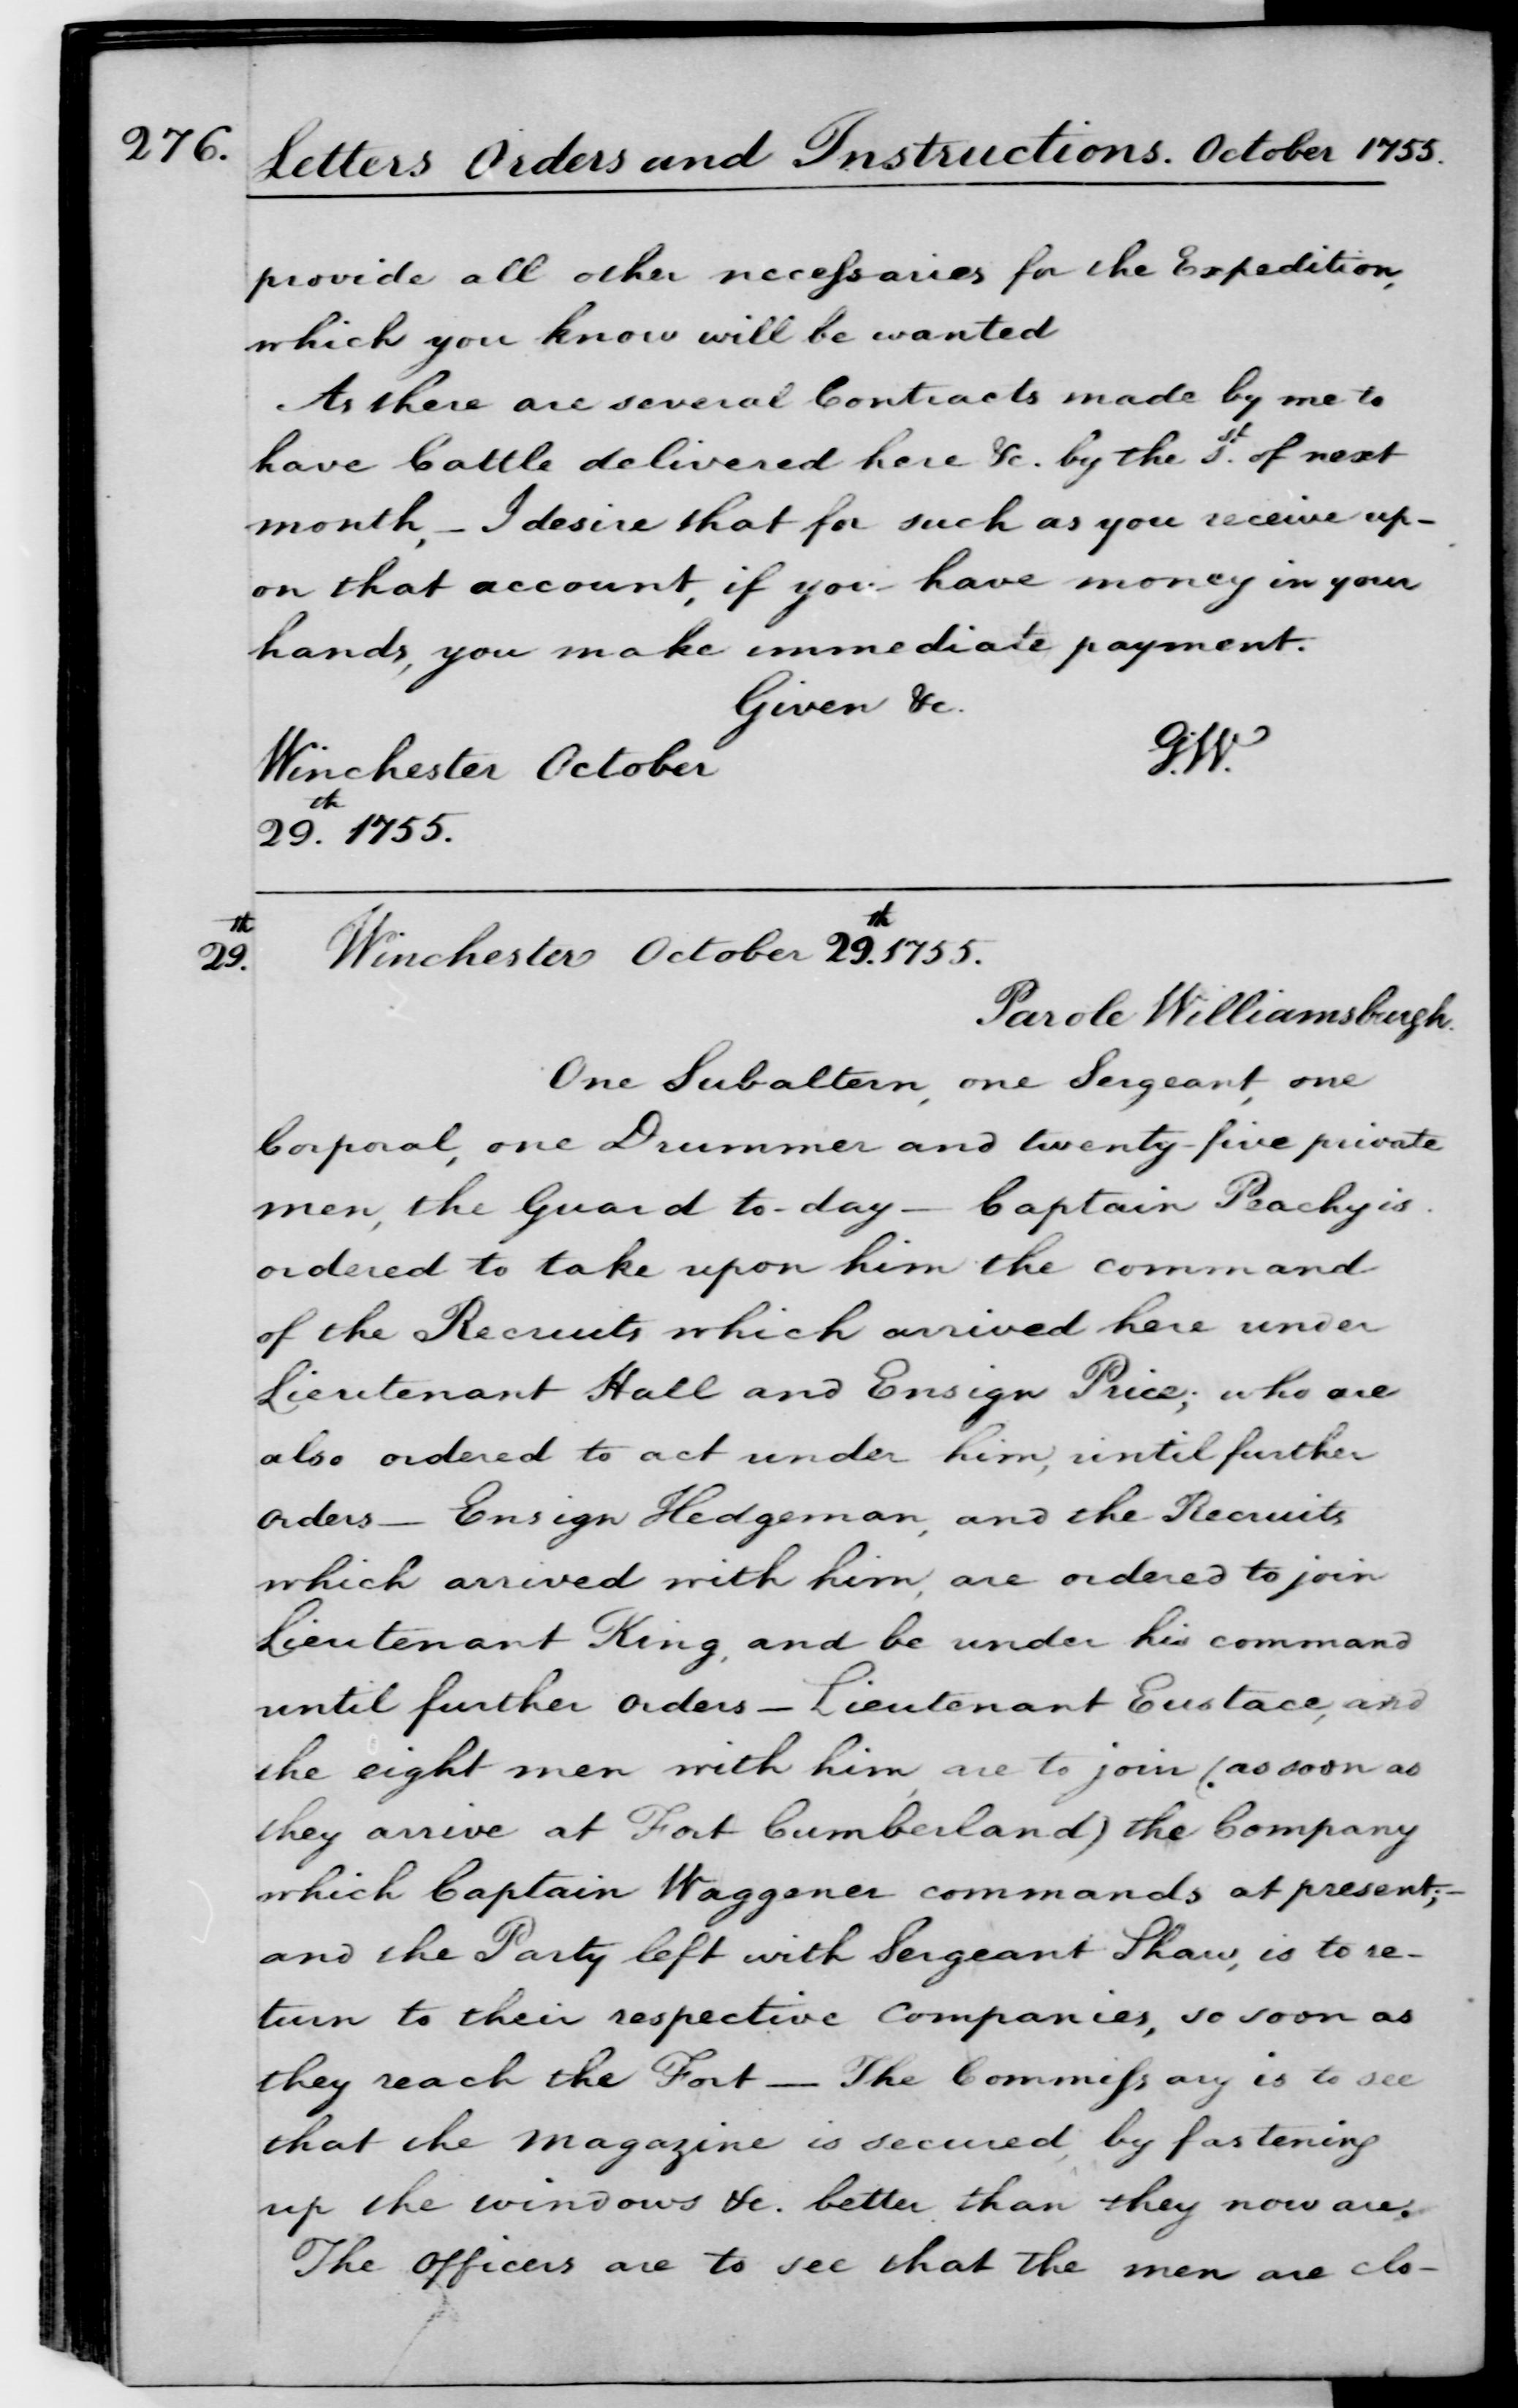 276. Letters Orders and Instructions. October 1755.
provide all other necessaries for the Expedition,
which you know will be wanted
As there are several Contracts made by me to
have Cattle delivered here &c. by the 1st. of next
month,- I desire that for such as you receive up-
on that account, if you have money in your
hands, you make immediate payment.
Given &c.
G.W.
Winchester October
29th. 1755.
29th. Winchester October 29th. 1755.
Parole Williamsburgh.
One Subaltern, one Sergeant, one
Corporal, one Drummer and twenty-five private
men, the Guard to-day — Captain Peachy is
ordered to take upon him the command
of the Recruits which arrived here under
Lieutenant Hall and Ensign Price; who are
also ordered to act under him, until further
orders — Ensign Hedgeman, and the Recruits
which arrived with him, are ordered to join
Lieutenant King, and be under his command
until further orders — Lieutenant Eustace, and
the eight men with him, are to join (as soon as
they arrive at Fort Cumberland) the Company
which Captain Waggener commands at present;-
and the Party left with Sergeant Shaw, is to re-
turn to their respective Companies, so soon as
they reach the Fort — The Commissary is to see
that the magazine is secured, by fastening
up the windows &c. better than they now are.
The Officers are to see that the men are clo-